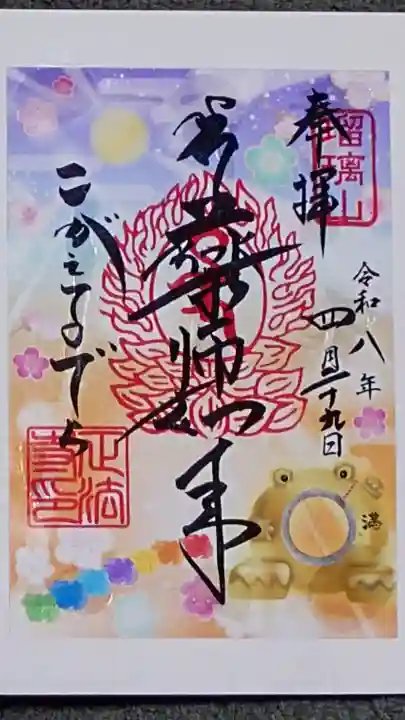 奉拝
瑠璃山
令和八年
四月二十九日
満
薬師如来
こがえるでら
正法寺印